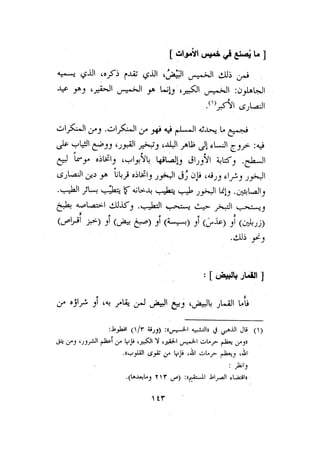 [ ما يُصنع في خميس الأموات ]
فمن ذلك الخميس البَيْضُ، الذي تقدم ذكره، الذي يسميه
الجاهلون: الخميس الكبير، وإنما هو الخميس الحقير، وهو عيد
النصارى الأكبر(١).
فجميع ما يحدثه المسلم فيه فهو من المنكرات. ومن المنكرات
فيه: خروج النساء إلى ظاهر البلد، وتبخير القبور، ووضع الثياب على
السطح. وكتابة الأوراق وإلصاقها بالأبواب، واتخاذه موسماً لبيع
البخور وشراء ورقه، فإن رُقى البخور واتخاذه قرباناً هو دين النصارى
والصابئين. وإنما البخور طيب يتطيب بدخانه كما يتطيَّب بسائر الطيب.
ويستحب التبخر حيث يستحب التطيب. وكذلك اختصاصه بطبخ
(رزبلبن) أو (عدَسٍ) أو (بسيسة) أو (صبغ بيض) أو (خبز أقراص)
ونحو ذلك.
[ القمار بالبيض ] :
فأما القمار بالبيض، وبيع البيض لمن يقامر به، أو شراؤه من
(١) قال الذهبي في «التشبيه الخسيس»: (ورقة ١/٣) مخطوط:
«ومن يعظم حرمات الخميس الحقير، لا الكبير، فإنها من أعظم الشرور، ومن يتق
الله، ويعظم حرمات الله، فإنها من تقوى القلوب».
وانظر :
«اقتضاء الصراط المستقيم»: (ص ٢١٣ ومابعدها).
١٤٣